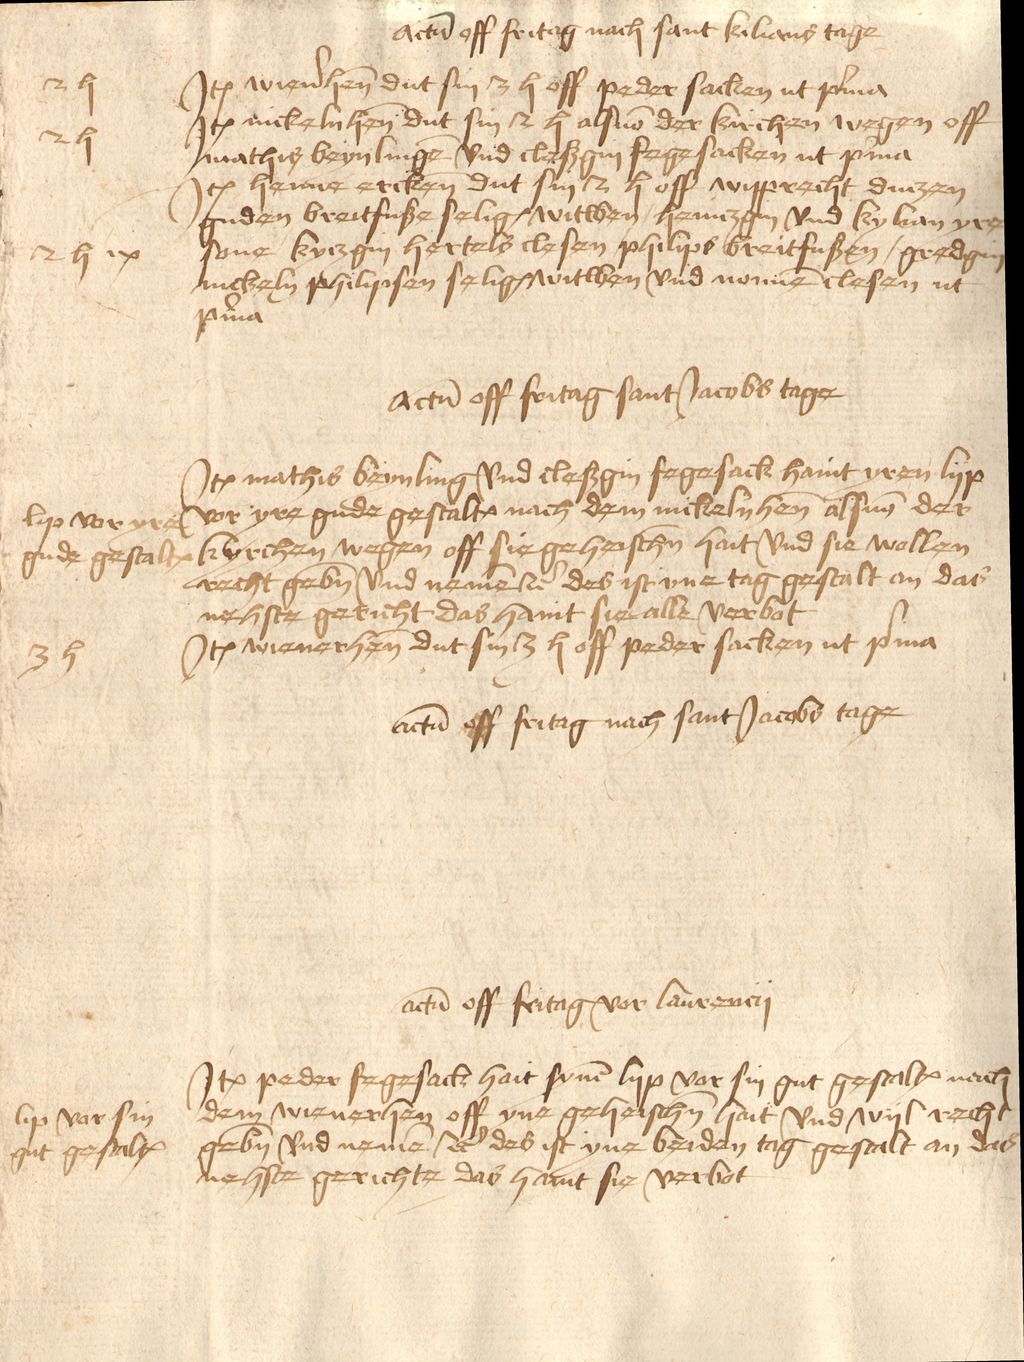 Actu(m) off fritag nach sant kilians tage
2 h
It(em) wien(er)hen dut sin 3 h off peder sacken ut p(ri)ma
2 h
It(em) nickelnhen dut sin 2 h als vo(n) der kirchen wegen off
mathis beynlinge(n) und cleßgin fegesacken ut p(ri)ma
It(em) henne ercken dut sin 2 h off wypprecht
guden breitfuße selig(en) witwen / heinczgin und kylian yre
2 h
sone / kyczgin hertels clesen philips breitfußen / gredgin
nickeln philipsen selig(en) witwen und clesen ut
p(ri)ma
Actu(m) off fritag sant Jacobs tage
It(em) mathis beynling und cleßgin fegesack haint yren lijp
lip vor yre
vor yre gude gestalt nach dem nickelnhen als vo(n) der
gude gestalt
kyrchen wegen off sie geheisch(e)n hait und sie wollen
recht geb(e)n und neme(n) (et)c(etera) des ist yne tag gestalt an das
nehste gericht das haint sie alle verbot
3 h
It(em) wienerhen dut sin 3 h off peder sacken ut p(ri)ma
actu(m) off fritag nach sant Jacobs tage
actu(m) off fritag vor laurencij
It(em) peder fegesack hait syne(n) lijp vor sin gut gestalt nach
lip vor sin
dem wienerhen off yne geheisch(e)n hait und wijl recht
gut gestalt
geb(e)n und neme(n) (et)c(etera) des ist yne beiden tag gestalt an das
nehste gerichte das haint sie verbot